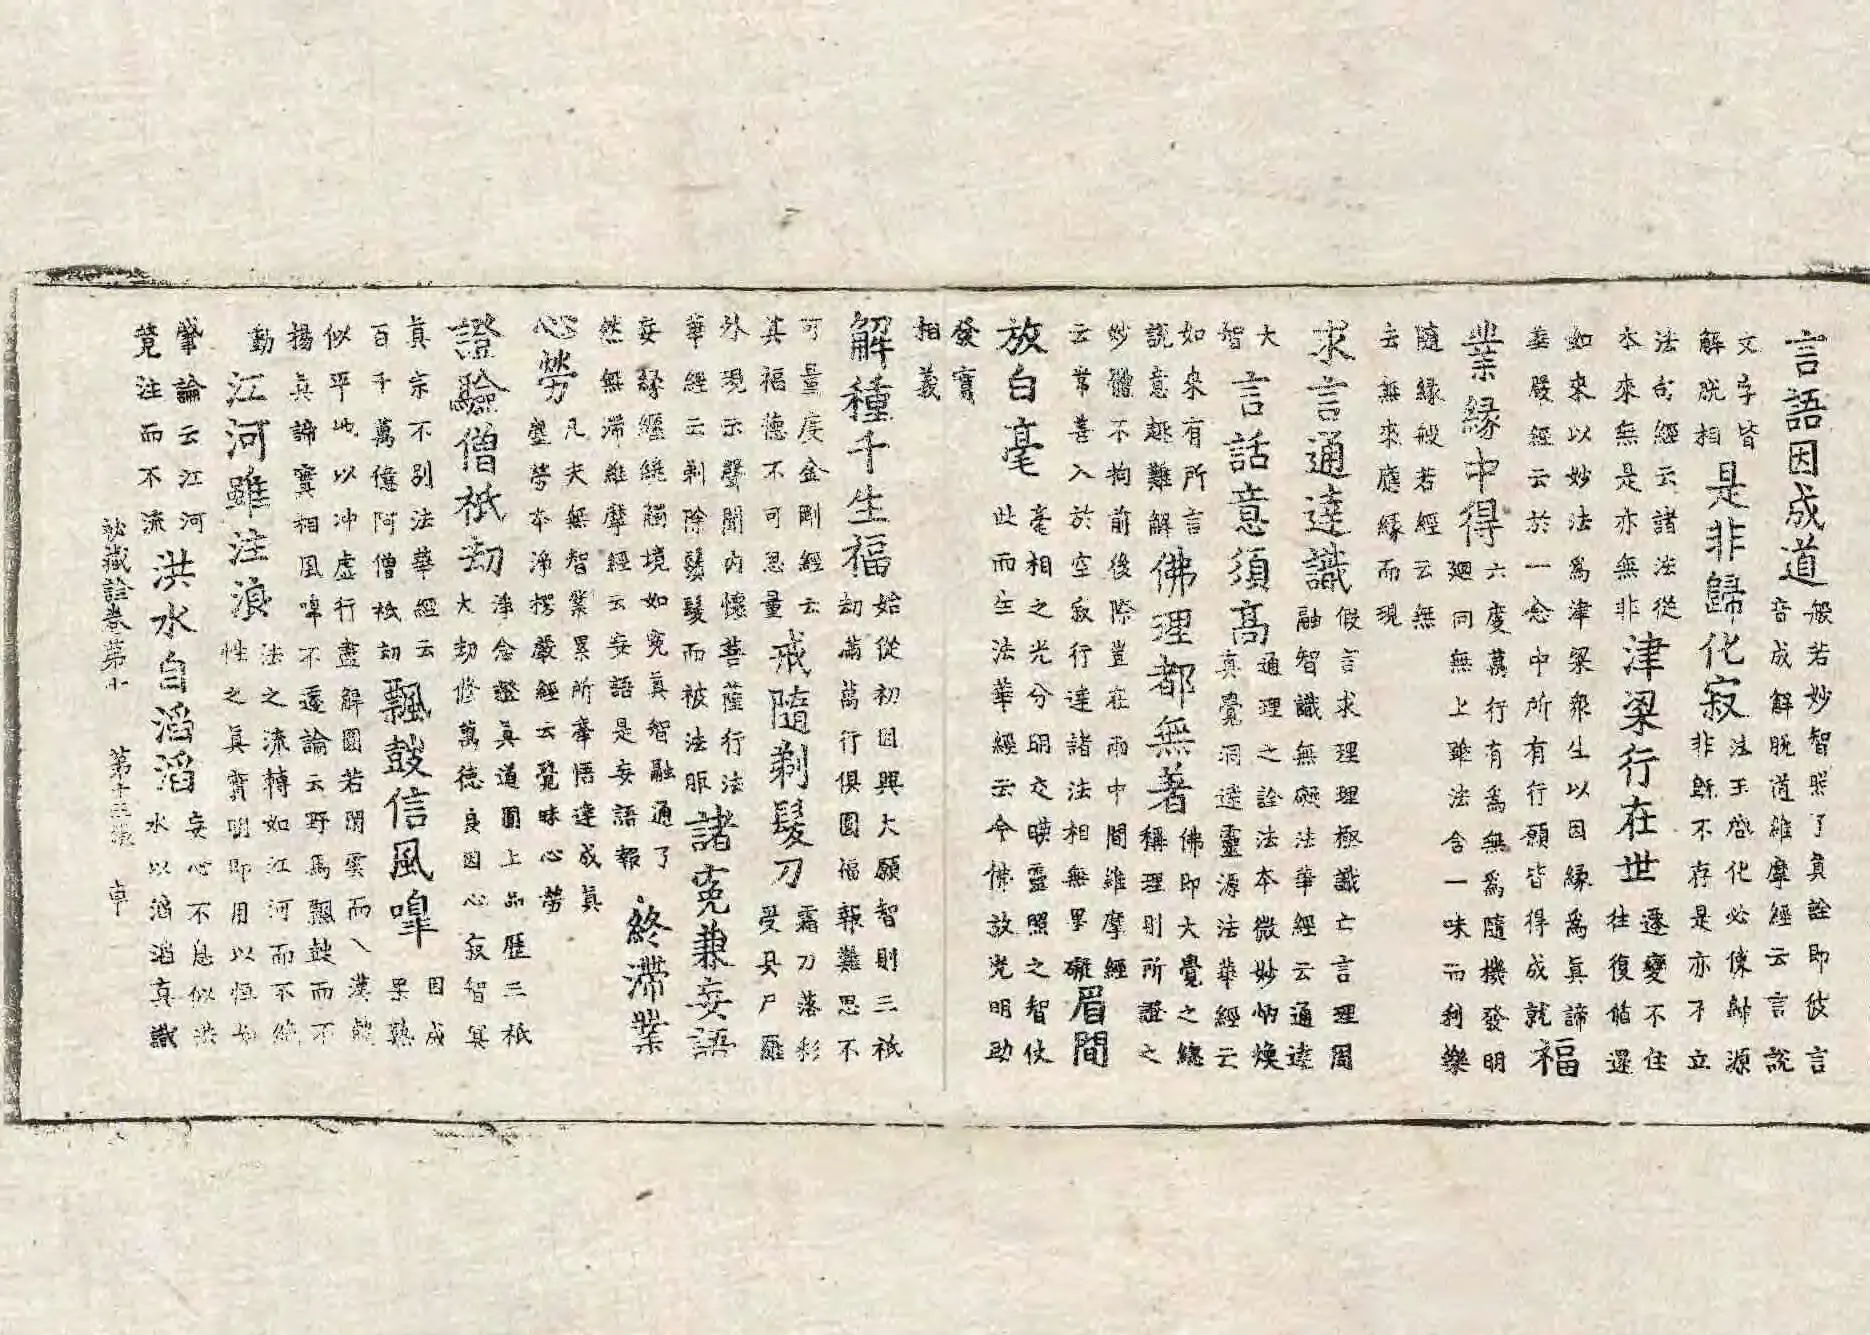 言語因成道 般若妙智照了真詮即彼言
音成解脫道維摩經云言說
文字皆
解脫相 是非歸化寂 法王啓化必使歸源
非既不存是亦不立
法句經云諸法從
本來無是亦無非 津梁行在世 遷變不住
往復循還
如來以妙法為津梁衆生以因緣為真諦
華嚴經云於一念中所有行願皆得成就 福
業緣中得 六度萬行有為無為隨機發明
迴向無上雖法含一味而利樂
隨緣般若經云無
去無來應緣而現
求言通達識 假言求理理極識亡言理周
融智識無礙法華經云通達
大
智 言話意須高 通理之詮法本微妙炳煥
真覺洞達靈源法華經云
如來有所言
說意趣難解 佛理都無著 佛即大覺之總
稱理則所證之
妙體不拘前後際豈在兩中間維摩經
云常善入於空寂行達諸法相無罣礙 眉間
放白毫 毫相之光分明交暎靈照之智仗
此而生法華經云今佛放光明助
發實
相義
解種千生福 始從初因興大願智則三祇
劫滿萬行俱圓福報難思不
可量度金剛經云
其福德不可思量 戒隨剃髮刀 霜刀落彩
受具尸羅
外現示聲聞內懷菩薩行法
華經云剃除鬚髮而被法服 諸寃兼妄語
妄緣纏繞觸境如寃真智融通了
然無滯維摩經云妄語是妄語報 終滯業
心勞 凡夫無智業累所牽悟達成真
塵勞本淨楞嚴經云覺昧心勞
證驗僧祇劫 淨念證真道圓上品歷三祇
大劫修萬德良因心寂智冥
真宗不別法華經云
百千萬億阿僧祇劫 飄鼓信風嘷 因成
果熟
似平地以冲虛行盡解圓若閑雲而
揚真諦實相風嘷不遷論云野馬飄鼓而不
動 江河雖注浪 法之流轉如江河而不絕
性之真實明即用以恒
肇論云江河
竟注而不流 洪水自滔滔 妄心不息似洪
水以滔滔真識
祕藏詮卷第十 第十三張 卓